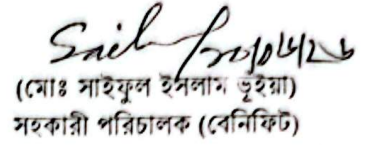 (মোঃ সাইফুল ইসলাম ভূইয়া)
সহকারী পরিচালক (বেনিফিট)